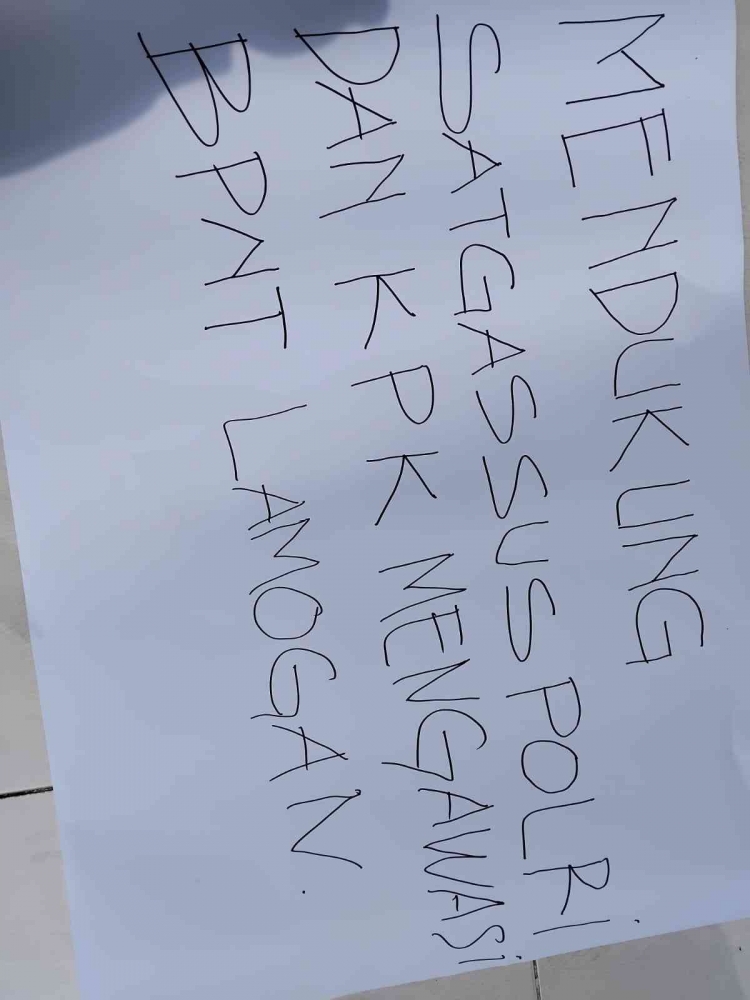 MENDUKUNG
SATGASSUS POLRi
DAN KPK MENGAWASi
BPNT LAMOGAN.